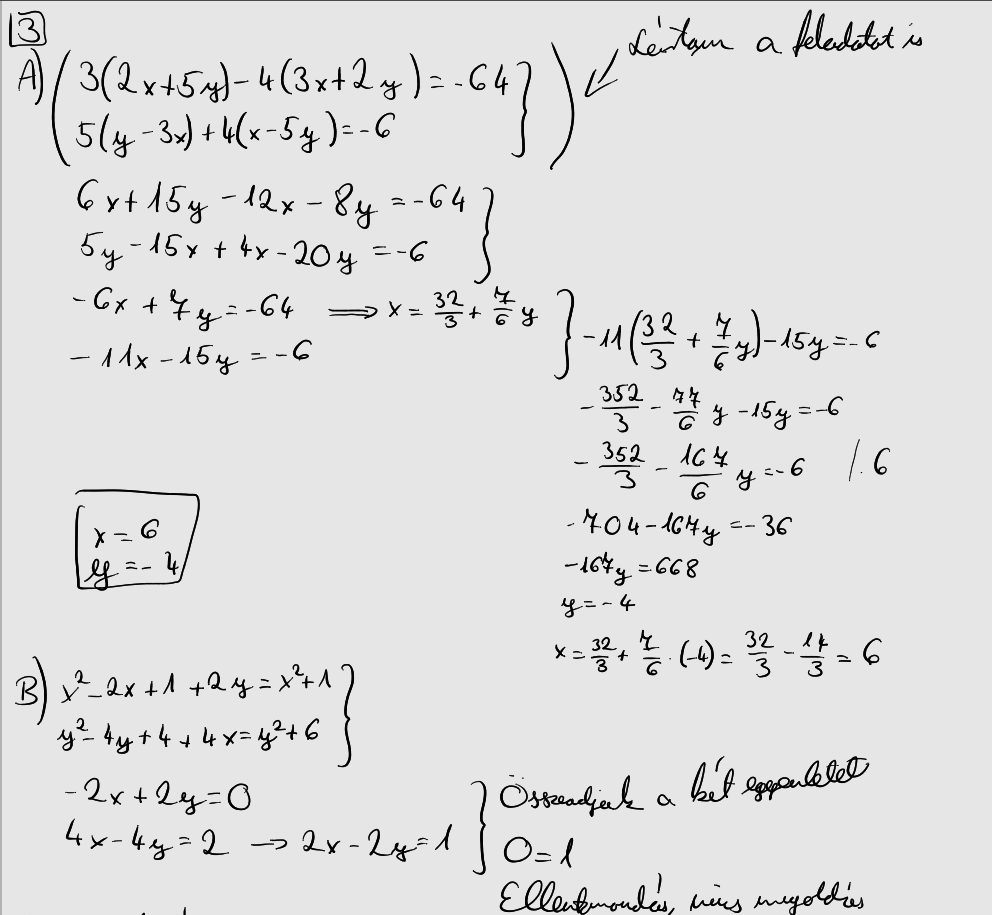 3
Leírtam a feladatot is
A) (3(2x+5y)-4(3x+2y)=-64
5(y-3x)+4(x-5y)=-6})
6x+15y-12x-8y=-64
5y-15x+4x-20y=-6}
-6x+7y=-64 ⟹ x=32/3+7/6y
-11x-15y=-6}
-11(32/3+7/6y)-15y=-6
-352/3-77/6y-15y=-6
-352/3-167/6y=-6 /·6
-704-167y=-36
-167y=668
y=-4
x=32/3+7/6·(-4)=32/3-14/3=6
x=6
y=-4
B) x²-2x+1+2y=x²+1
y²-4y+4+4x=y²+6}
-2x+2y=0
4x-4y=2 → 2x-2y=1}
Összeadjuk a két egyenletet
0=1
Ellentmondás, nincs megoldás